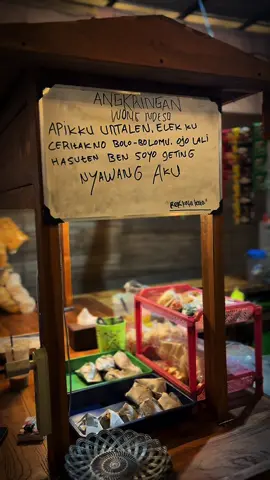 ANGKRINGAN
WONG NDESO
APIKKU UNTALEN, ELEK KU
CERITAKNO BOLO-BOLOMU, OJO LALI
HASUTEN BEN SOYO GETING
NYAWANG AKU